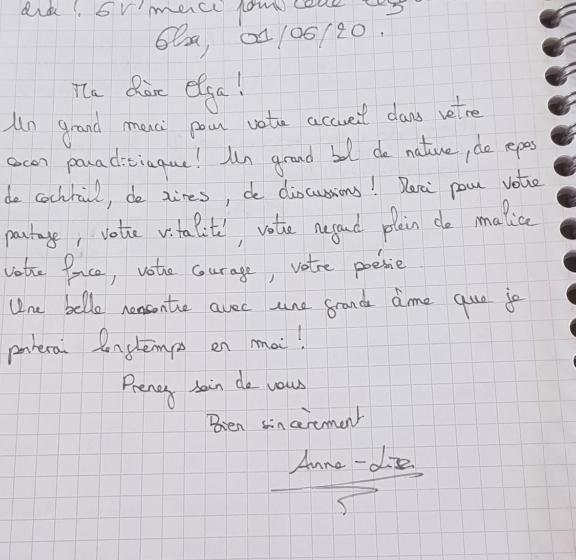 ! Et merci pour
Elsa, 01/06/20.
Ma chère Olga!
Un grand merci pour votre accueil dans votre
cocon paradisiaque! Un grand bol de nature, de repos
de cocktail, de rires, de discussions! Merci pour votre
partage, votre vitalité, votre regard plein de malice
votre force, votre courage, votre poésie
Une belle rencontre avec une grande âme que je
porterai longtemps en moi!
Prenez soin de vous
Bien sincèrement
Anne-Lise